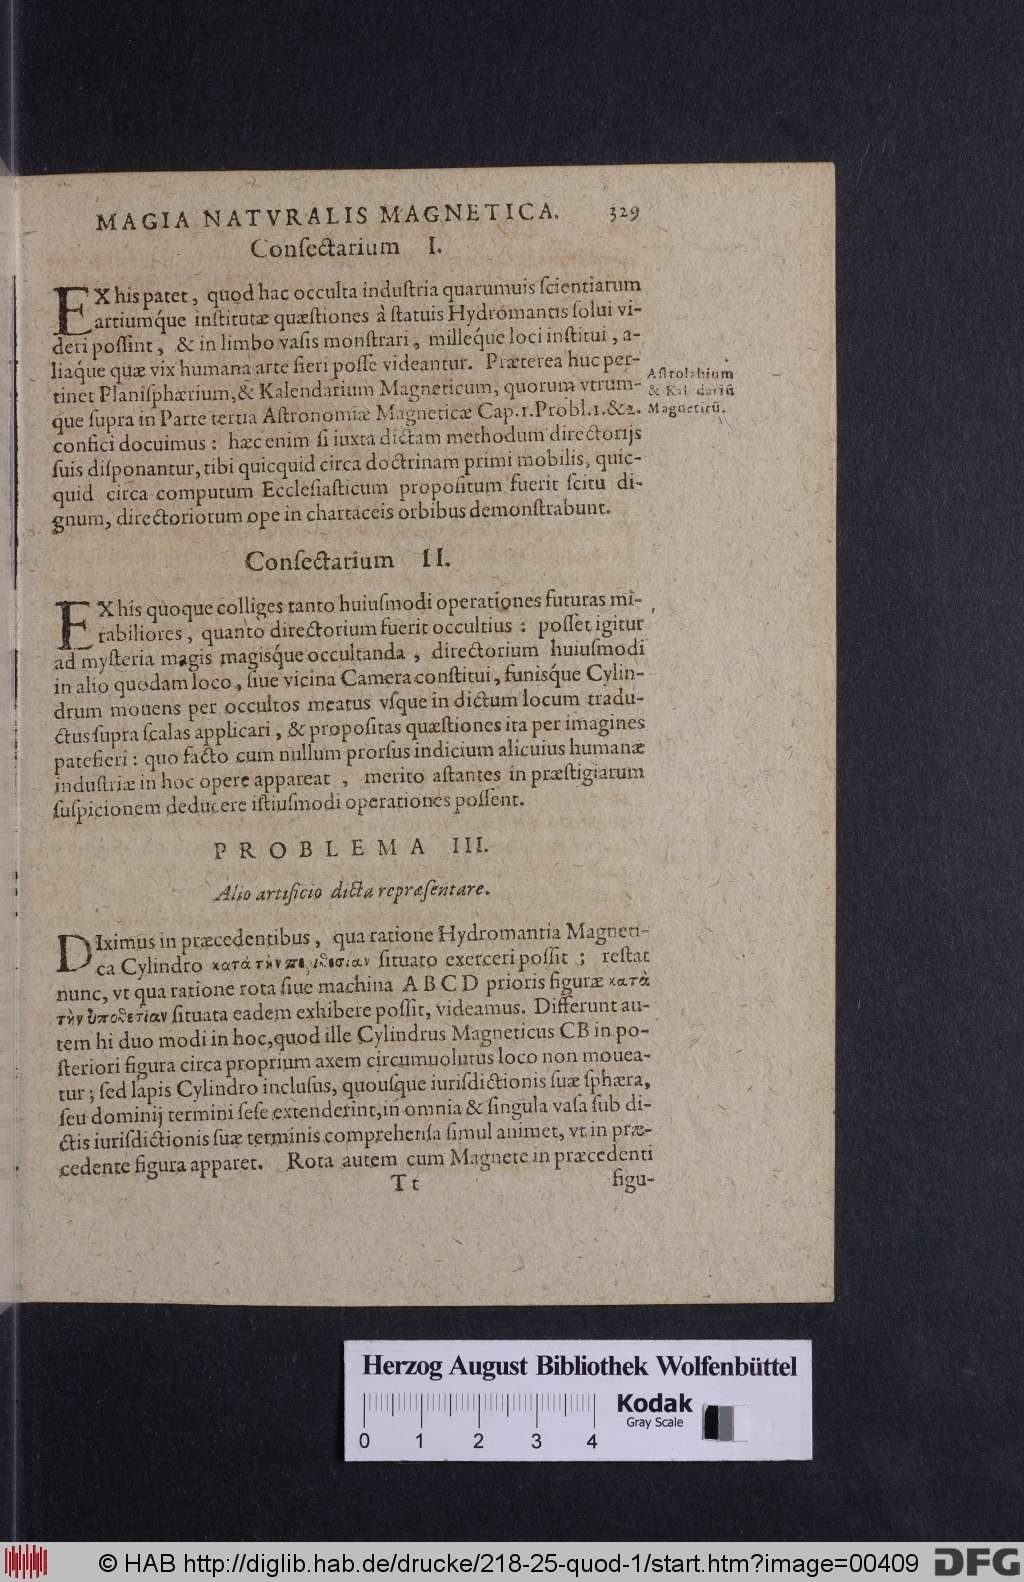 MAGIA NATVRALIS MAGNETICA. 329
Conſectarium I.
EX his patet, quod hac occulta induſtria quarumuis ſcientiarum
artiumq́ue inſtitutæ quæſtiones à ſtatuis Hydromantis ſolui vi-
deri poſſint, & in limbo vaſis monſtrari, milleq́ue loci inſtitui, a-
liaq́ue quæ vix humana arte fieri poſſe videantur. Præterea huc per-
tinet Planiſphærium, & Kalendarium Magneticum, quorum vtrum-
que ſupra in Parte tertia Aſtronomiæ Magneticæ Cap.1.Probl.1.&2.
confici docuimus: hæc enim ſi iuxta dictam methodum directorijs
ſuis diſponantur, tibi quicquid circa doctrinam primi mobilis, quic-
quid circa computum Eccleſiaſticum propoſitum fuerit ſcitu di-
gnum, directoriorum ope in chartaceis orbibus demonſtrabunt.
Aſtrolabium
& Kalendariũ
Magneticũ.
Conſectarium II.
EX his quoque colliges tanto huiuſmodi operationes futuras mi-
rabiliores, quanto directorium fuerit occultius: poſſet igitur
ad myſteria magis magisq́ue occultanda, directorium huiuſmodi
in alio quodam loco, ſiue vicina Camera conſtitui, funisq́ue Cylin-
drum mouens per occultos meatus vſque in dictum locum tradu-
ctus ſupra ſcalas applicari, & propoſitas quæſtiones ita per imagines
patefieri: quo facto cum nullum prorſus indicium alicuius humanæ
induſtriæ in hoc opere appareat, merito aſtantes in præſtigiarum
ſuſpicionem deducere iſtiuſmodi operationes poſſent.
PROBLEMA III.
Alio artificio dicta repræſentare.
DIximus in præcedentibus, qua ratione Hydromantia Magneti-
ca Cylindro κατὰ τὴν περίθεσίαν ſituato exerceri poſſit; reſtat
nunc, vt qua ratione rota ſiue machina A B C D prioris figuræ κατὰ
τὴν ὑποθετίαν ſituata eadem exhibere poſſit, videamus. Differunt au-
tem hi duo modi in hoc, quod ille Cylindrus Magneticus CB in po-
ſteriori figura circa proprium axem circumuolutus loco non mouea-
tur; ſed lapis Cylindro incluſus, quouſque iuriſdictionis ſuæ ſphæra,
ſeu dominij termini ſeſe extenderint, in omnia & ſingula vaſa ſub di-
ctis iuriſdictionis ſuæ terminis comprehenſa ſimul animet, vt in præ-
cedente figura apparet. Rota autem cum Magnete in præcedenti
Tt figu-
Herzog August Bibliothek Wolfenbüttel
Kodak
Gray Scale
0 1 2 3 4
© HAB http://diglib.hab.de/drucke/218-25-quod-1/start.htm?image=00409
DFG